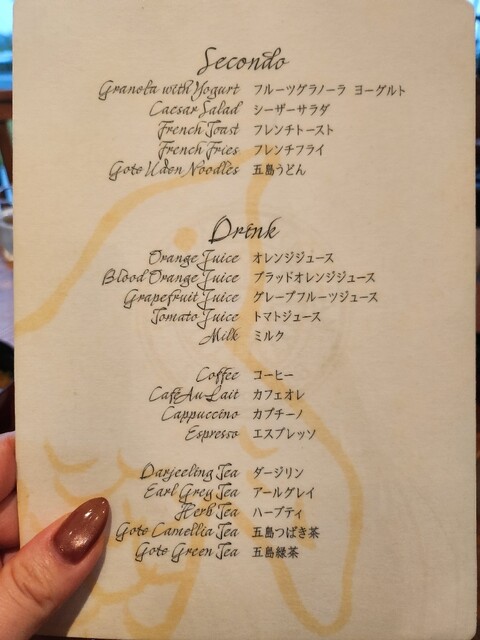 Secondo
Granola with Yogurt フルーツグラノーラ ヨーグルト
Caesar Salad シーザーサラダ
French Toast フレンチトースト
French Fries フレンチフライ
Goto Uden Noodles 五島うどん
Drink
Orange Juice オレンジジュース
Blood Orange Juice ブラッドオレンジジュース
Grapefruit Juice グレープフルーツジュース
Tomato Juice トマトジュース
Milk ミルク
Coffee コーヒー
Café Au Lait カフェオレ
Cappuccino カプチーノ
Espresso エスプレッソ
Darjeeling Tea ダージリン
Earl Grey Tea アールグレイ
Herb Tea ハーブティ
Goto Camellia Tea 五島つばき茶
Goto Green Tea 五島緑茶